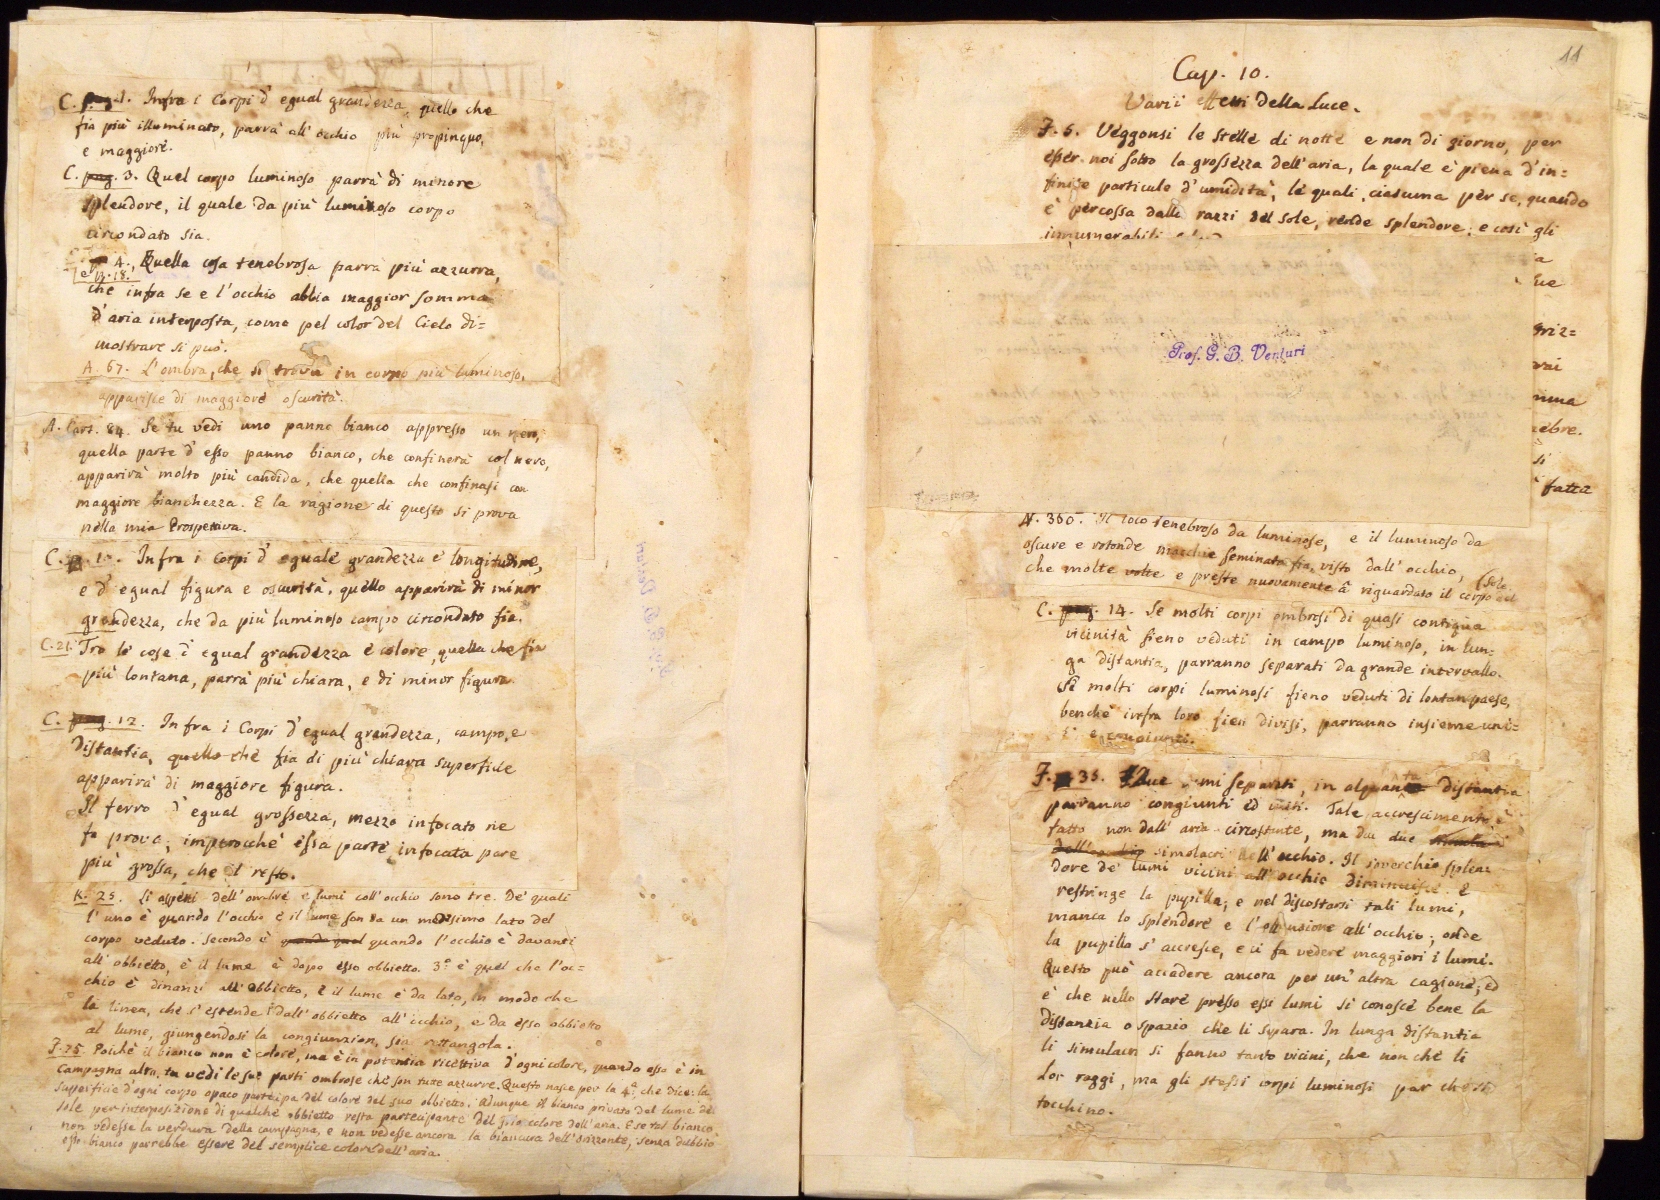 C. pag. 1. Infra i Corpi d' egual grandezza, quello che
fia più illuminato, parrà all' occhio più propinquo,
e maggiore.
C. pag. 3. Quel corpo luminoso parrà di minore
splendore, il quale da più luminoso corpo
circondato sia.
4. Quella cosa tenebrosa parrà più azzurra,
e p. 18.
che infra se e l'occhio abbia maggior somma
d'aria interposta, come pel color del Cielo di=
mostrare si può.
A. 67. L'ombra, che si trova in corpo più luminoso,
apparisce di maggiore oscurità.
A. Cart. 84. Se tu vedi uno panno bianco appresso un nero,
quella parte d' esso panno bianco, che confinerà col nero,
apparirà molto più candida, che quella che confinasi con
maggiore bianchezza. E la ragione di questo si prova
nella mia Prospettiva.
C. p. 10. Infra i Corpi d' eguale grandezza e longitudine,
e d' egual figura e oscurità, quello apparirà di minor
grandezza, che da più luminoso campo circondato fia.
C. 21. Tra le cose d' egual grandezza e colore, quella che fia
più lontana, parrà più chiara, e di minor figura
C. pag. 12. Infra i Corpi d'egual grandezza, campo, e
distantia, quello che fia di più chiara superficie
apparirà di maggiore figura.
Il ferro d' egual grossezza, mezzo infocato ne
fa prova; imperocchè essa parte infocata pare
più grossa, che il resto.
K. 25. Li aspetti dell' ombre e lumi coll' occhio sono tre. De' quali
l' uno è quando l'occhio e il lume son da un medesimo lato del
corpo veduto. Secondo è quando quel quando l'occhio è davanti
all' obbietto, e il lume è dopo esso obbietto. 3º è quel che l'oc=
chio è dinanzi all' obbietto, e il lume è da lato, in modo che
la linea, che s' estende dall' obbietto all' occhio, e da esso obbietto
al lume, giungendosi la congiunzion, sia rettangola.
F. 75. Poichè il bianco non è colore, ma è in potentia ricettiva d'ogni colore, quando esso è in
campagna alta, tu vedi le sue parti ombrose che son tutte azzurre. Questo nasce per la 4ª, che dice: la
superficie d'ogni corpo opaco partecipa del colore del suo obbietto. Adunque il bianco privato del lume del
sole per interposizione di qualche obbietto resta partecipante del solo colore dell' aria. E se tal bianco
non vedesse la verdura della campagna, e non vedesse ancora la biancura dell' orizzonte, senza dubbio
esso bianco parrebbe essere del semplice colore dell' aria.
11
Cap. 10.
Varii effetti della Luce.
F. 5. Veggonsi le stelle di notte e non di giorno, per
esser noi sotto la grossezza dell' aria, la quale è piena d'in=
finite particule d' umidità, le quali, ciascuna per se, quando
è percossa dalli razzi del sole, rende splendore; e così gli
innumerabili
ia
due
oriz=
rai
nma
ebre.
si
fatta
Prof. G. B. Venturi
N. 360. Il loco tenebroso da luminose, e il luminoso da
oscure e rotonde macchie seminato fia, visto dall' occhio,
che molte volte e preste nuovamente à riguardato il corpo del (Sole
C. pag. 14. Se molti corpi ombrosi di quasi contigua
vicinità fieno veduti in campo luminoso, in lun=
ga distantia, parranno separati da grande intervallo.
Se molti corpi luminosi fieno veduti di lontan paese,
benchè infra loro fien divisi, parranno insieme uni=
ti e congiunti.
F. 35. I due lumi separati, in alquanta distantia
parranno congiunti ed uniti. Tale accrescimento è
fatto non dall' aria circostante, ma da due
simolacri dell' occhio. Il soverchio splen=
dore de' lumi vicini all' occhio diminuisce e
restringe la pupilla; e nel discostarsi tali lumi,
manca lo splendore e l' offusione all' occhio; onde
la pupilla s' accresce, e ci fa vedere maggiori i lumi.
Questo può accadere ancora per un' altra cagione, ed
è che nello stare presso essi lumi si conosce bene la
distanzia o spazio che li separa. In lunga distantia
li simulacri si fanno tanto vicini, che non chè li
lor raggi, ma gli stessi corpi luminosi par che si
tocchino.